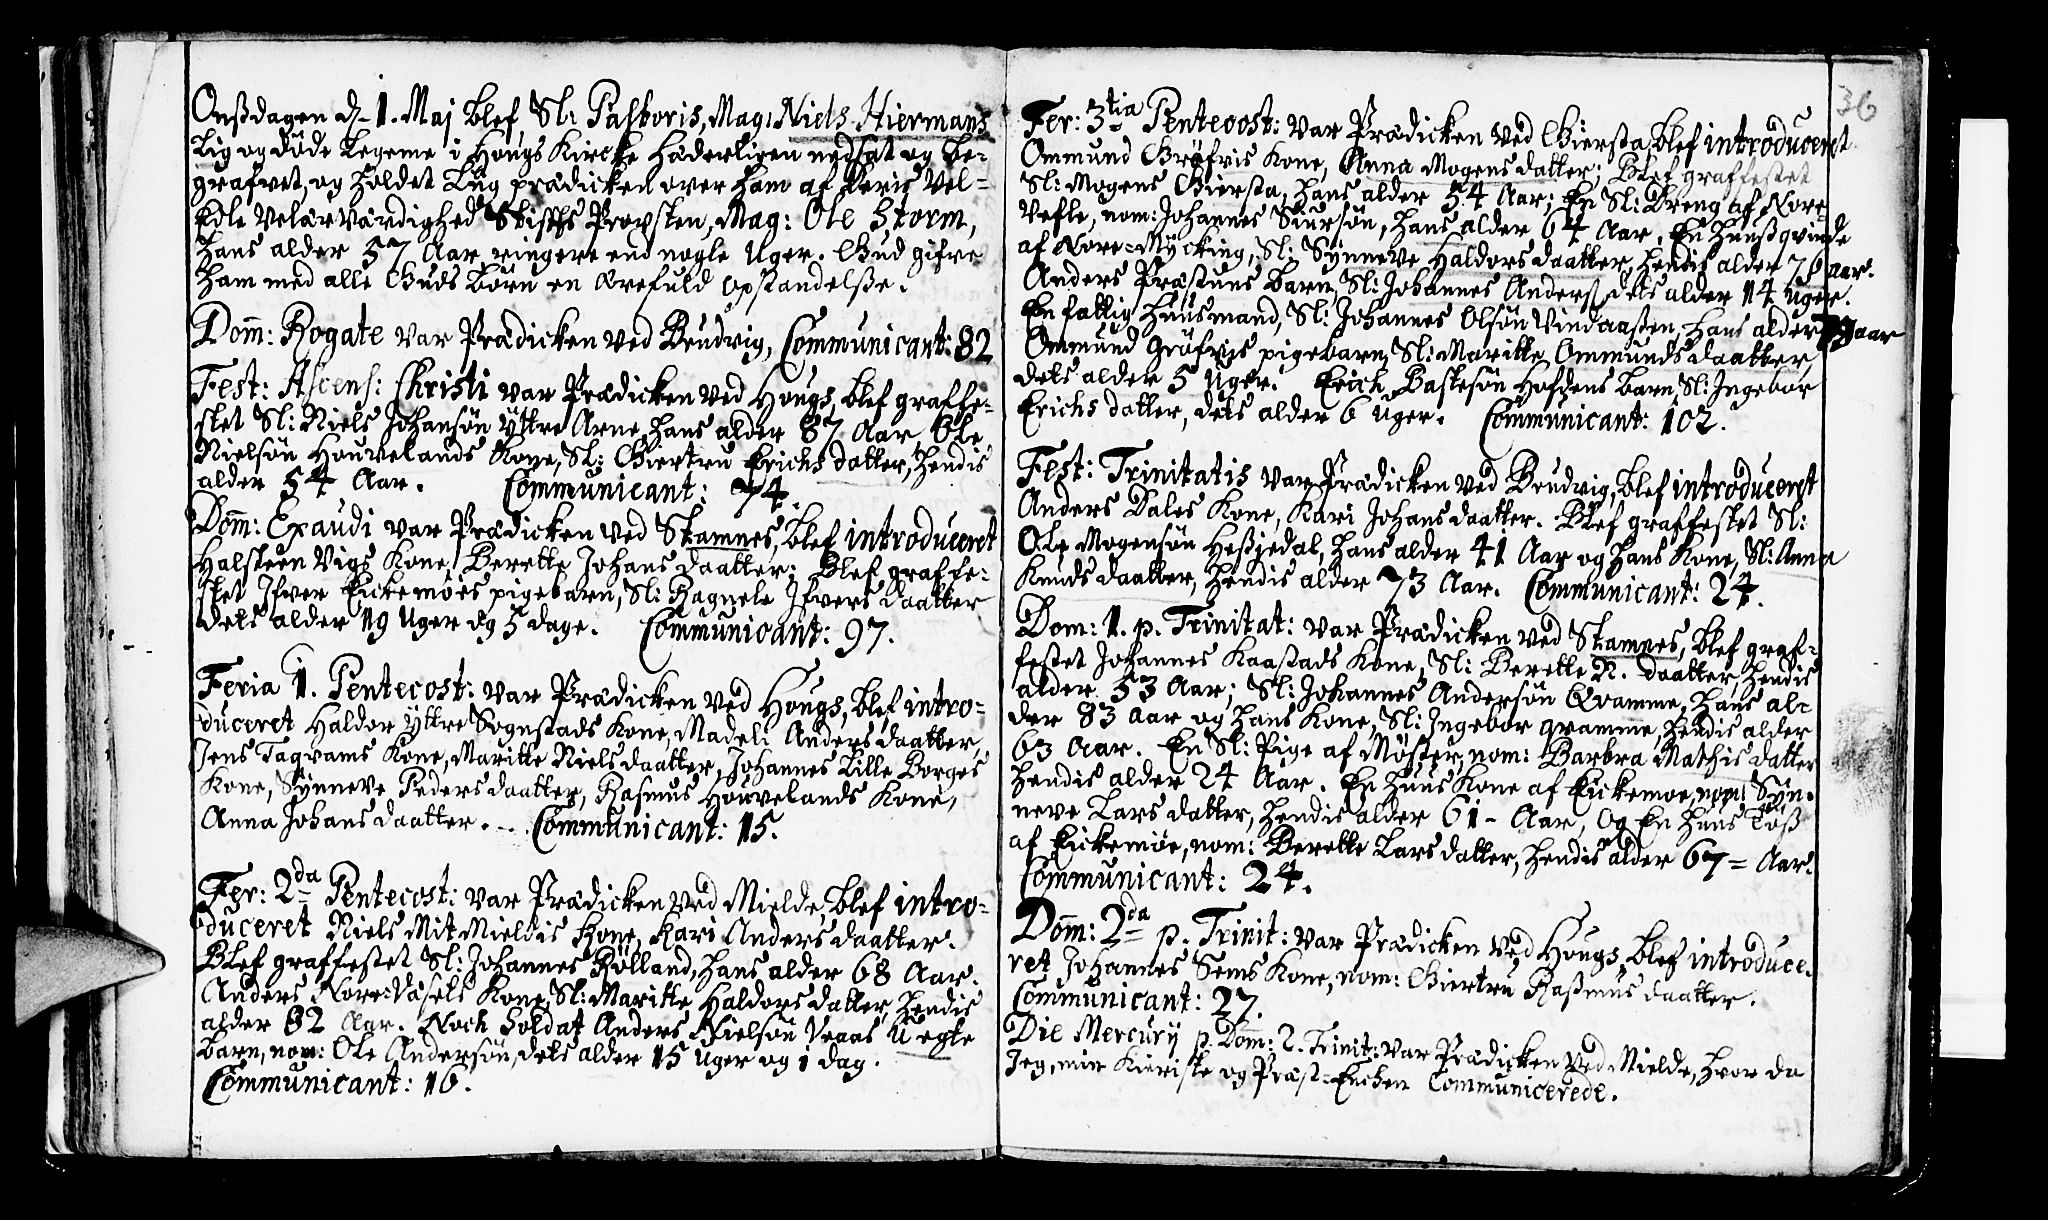 Onsdagen d. 1. Maj blef Sl: Pastoris, Mag: Niels Hiermans
Lig og döde Legeme i Hougs Kircke hæderligen nedsat og be-
grafvet, og holdet Liig prædicken over ham af Deris Vel-
Edle Velærværdighed Stiffts Provsten, Mag: Ole Storm,
hans alder 57 Aar ringere end nogle Uger. Gud gifve
ham med alle Guds Börn en ærefuld opstandelse.
Dom: Rogate var Prædicken ved Brudvig, Communicant: 82
Fest: Ascens: Christi var Prædicken ved Hougs, blef graffe-
stet Sl: Niels Johansön Yttre Arne, hans alder 87 Aar, Ole
Nielsön Houvelands Kone, Sl: Giertru Erichs datter, hendis
alder 54 Aar. Communicant: 74.
Dom: Exaudi var Prædicken ved Stamnes, blef introduceret
Halsteen Vigs Kone, Berette Johans daatter; Blef graffe-
stet Ifver Eickemöes pigebarn, Sl: Ragnele Ifvers daatter
dets alder 19 Uger og 5 dage. Communicant: 97.
Feria 1. Pentecost: var Prædicken ved Hougs, blef intro-
duceret Haldor Yttre Sognstads Kone, Madeli Anders daatter,
Jens Tagvams Kone, Maritte Niels daatter, Johannes Lille Borges
Kone, Synneve Peders daatter, Rasmus Houvelands Kone,
Anna Johans daatter. Communicant: 15.
Fer: 2da Pentecost: var Prædicken ved Mielde, blef intro-
duceret Niels Mit Mieldis Kone, Kari Anders daatter.
Blef graffestet Sl: Johannes Rölland, hans alder 68 Aar.
Anders Nore-Vasels Kone, Sl: Maritte Haldors datter, hendis
alder 82 Aar. Noch Soldat Anders Nielsön Veaas Uegte
barn, nom: Ole Andersön, dets alder 15 Uger og 1 dag.
Communicant: 16.
36
Fer: 3tia Pentecost: var Prædicken ved Giersta, blef introduceret
Ommund Gröfvis Kone, Anna Mogens datter; Blef graffestet
Sl: Mogens Giersta, hans alder 54 Aar; En Sl: Dreng af Nore-
Vefle, nom: Johannes Siursön, hans alder 64 Aar. En huusqvinde
af Nore-Mycking, Sl: Synneve Haldors daatter, hendis alder 76 Aar.
Anders Præstuns Barn, Sl: Johannes Anders, dets alder 14 Uger.
En fattig huusmand, Sl: Johannes Olsön Vindaasen, hans alder 79 Aar
Ommund Gröfvis pigebarn, Sl: Maritte Ommunds daatter,
dets alder 5 Uger. Erich Bastesön Hofdens barn, Sl: Ingebor
Erichs datter, dets alder 6 Uger. Communicant: 102.
Fest: Trinitatis var Prædicken ved Brudvig, blef introduceret
Anders Dales Kone, Kari Johans daatter. Blef graffestet Sl:
Ole Mogensön Hesjedal, hans alder 41 Aar og hans Kone, Sl: Anna
Knuds daatter, hendis alder 73 Aar. Communicant: 24.
Dom: 1. p. Trinitat: var Prædicken ved Stamnes, blef graf-
festet Johannes Kaastads Kone, Sl: Berette N. daatter, hendis
alder 53 Aar; Sl: Johannes Andersön Qvamme, hans al-
der 83 Aar og hans Kone, Sl: Ingebor Qvamme, hendis alder
63 Aar. En Sl: Pige af Möster, nom: Barbra Mathis datter
hendis alder 24 Aar. En huus Kone af Eickemoe, nom: Syn-
neve Lars datter, hendis alder 61 - Aar, Og En huus Tös
af Eickemöe, nom: Berette Lars datter, hendis alder 67 = Aar.
Communicant: 24.
Dom: 2da p. Trinit: var Prædicken ved Hougs, blef introduce-
ret Johannes Sems Kone, nom: Giertru Rasmus daatter.
Communicant: 27.
Die Mercurij p. Dom: 2. Trinit: var Prædicken ved Mielde, hvor da
Jeg, min Kieriste og Præst-Enchen Communicerede.